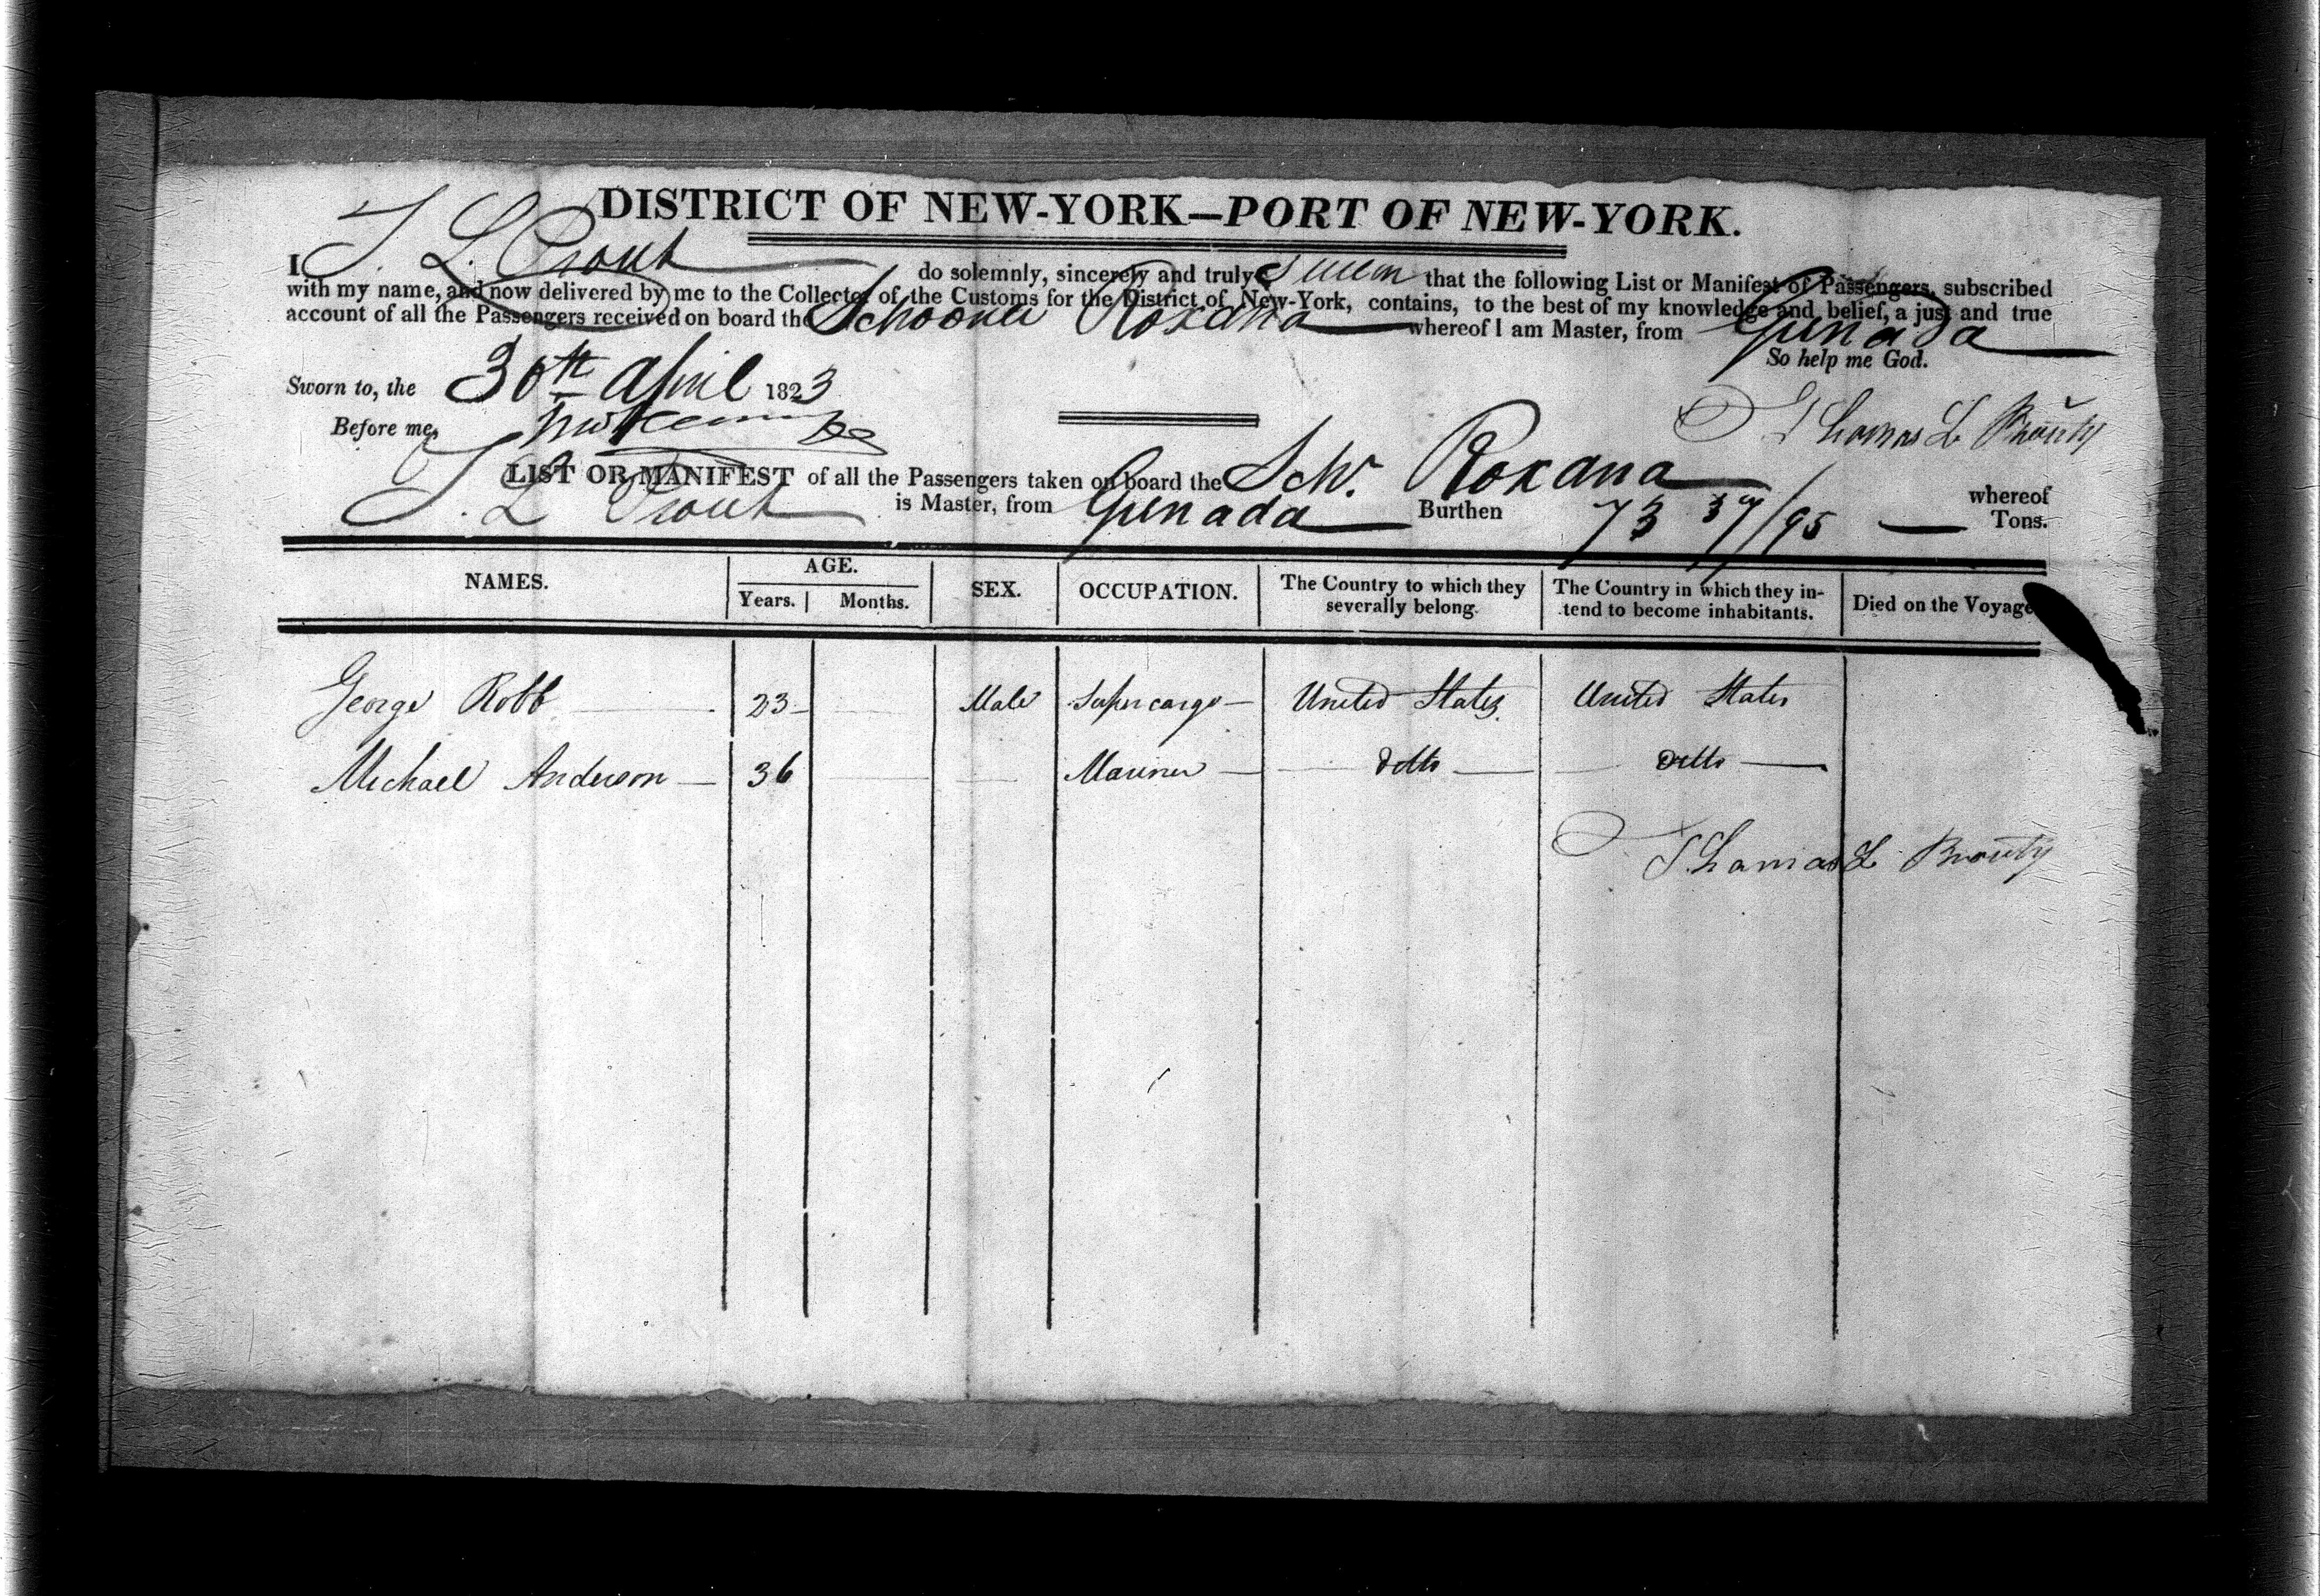 DISTRICT OF NEW-YORK—PORT OF NEW-YORK.
I T. L. Prout do solemnly, sincerely and truly Swear that the following List or Manifest of Passengers, subscribed
with my name, and now delivered by me to the Collector of the Customs for the District of New-York, contains, to the best of my knowledge and belief, a just and true
account of all the Passengers received on board the Schooner Roxana whereof I am Master, from Grenada
So help me God.
Sworn to, the 30th April 1823
Before me,
Thomas L Prouty
LIST OR MANIFEST of all the Passengers taken on board the Schr. Roxana whereof
T. L Prout is Master, from Grenada Burthen 73 37/95 Tons.
NAMES. AGE. SEX. OCCUPATION. The Country to which they severally belong. The Country in which they in-tend to become inhabitants. Died on the Voyage
Years. Months.
George Robb 23 Male Supercargo United States United States
Michael Anderson 36 Mariner ditto ditto
Thomas L Prouty